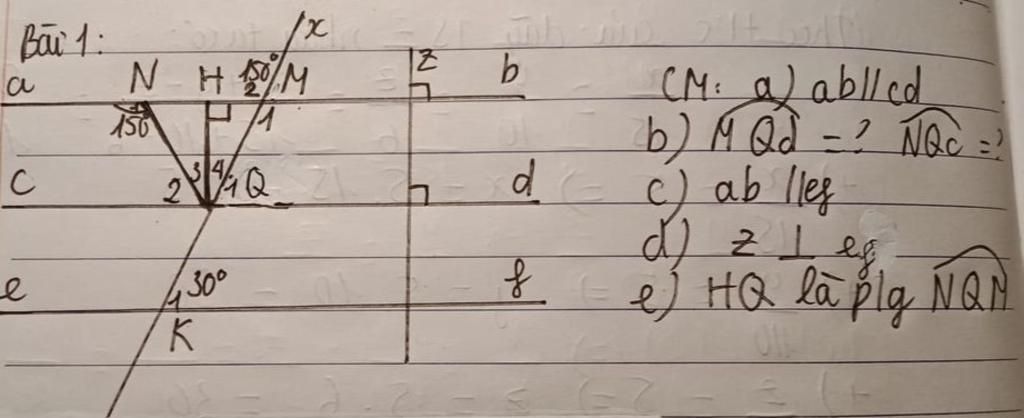 Bài 1:
x
a N H 150° M z b
2
1
150°
c 2 3 4 1 Q d
e 1 30° f
K
CM: a) ab//cd
b) MQd = ? NQc = ?
c) ab //ef
d) z ⊥ ef
e) HQ là p/g NQM